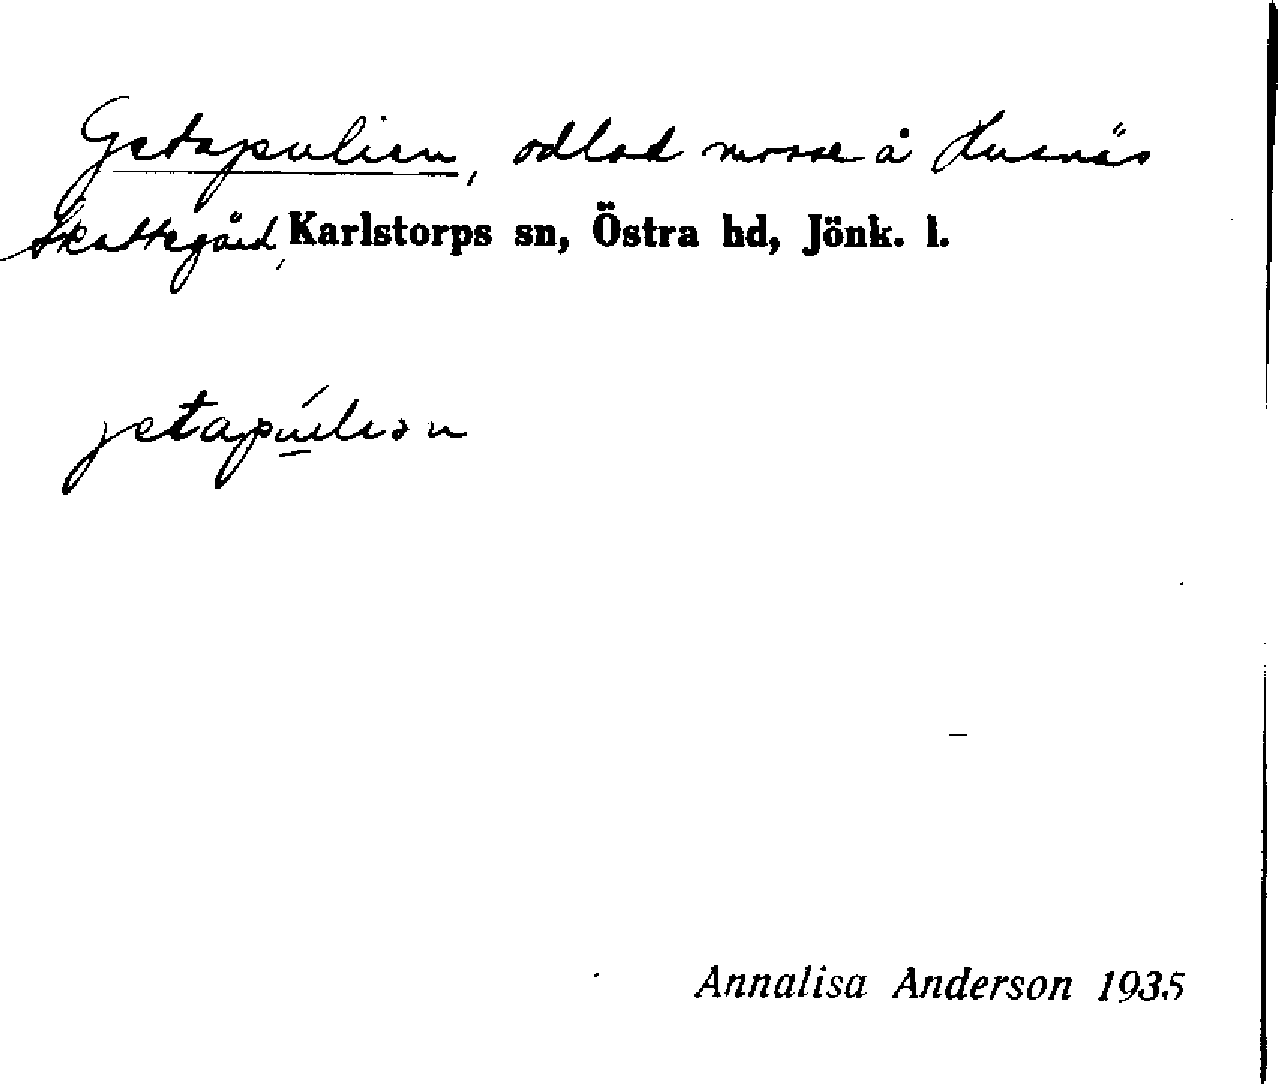 Getapulien, odlad mosse å Husnäs
Skattegård, Karlstorps sn, Östra hd, Jönk. l.
Annalisa Anderson 1935